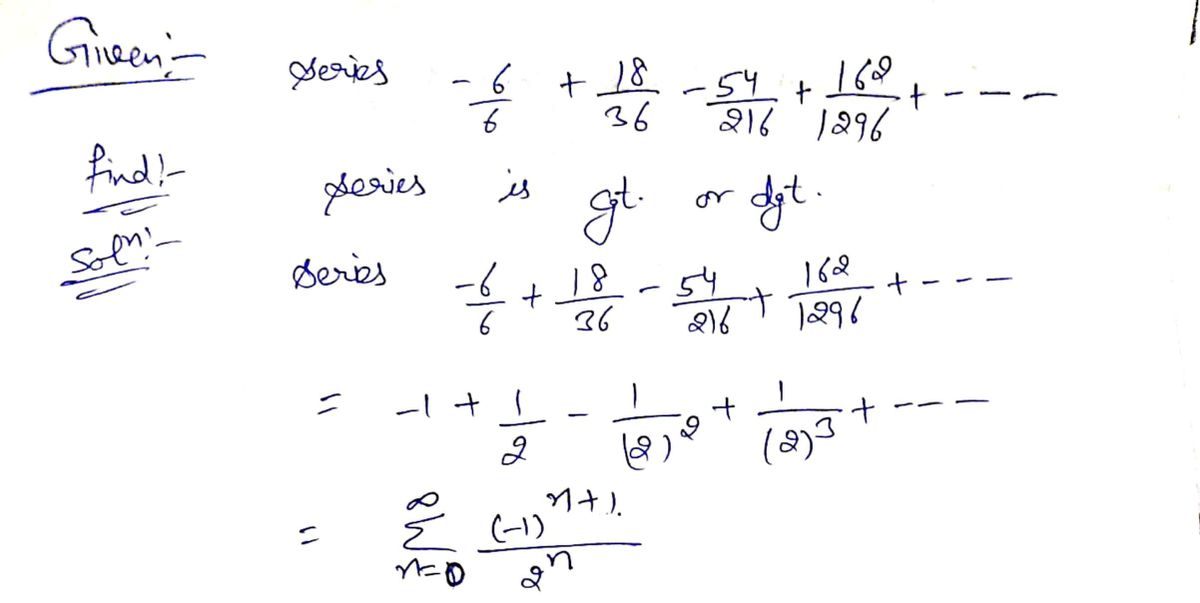 Given:- series - 6/6 + 18/36 - 54/216 + 162/1296 + - - -
find!- series is cgt. or dgt.
Solⁿ!- series -6/6 + 18/36 - 54/216 + 162/1296 + - - -
= -1 + 1/2 - 1/(2)² + 1/(2)³ + - - -
= ∞ Σ n=0 (-1)^(n+1) / 2^n